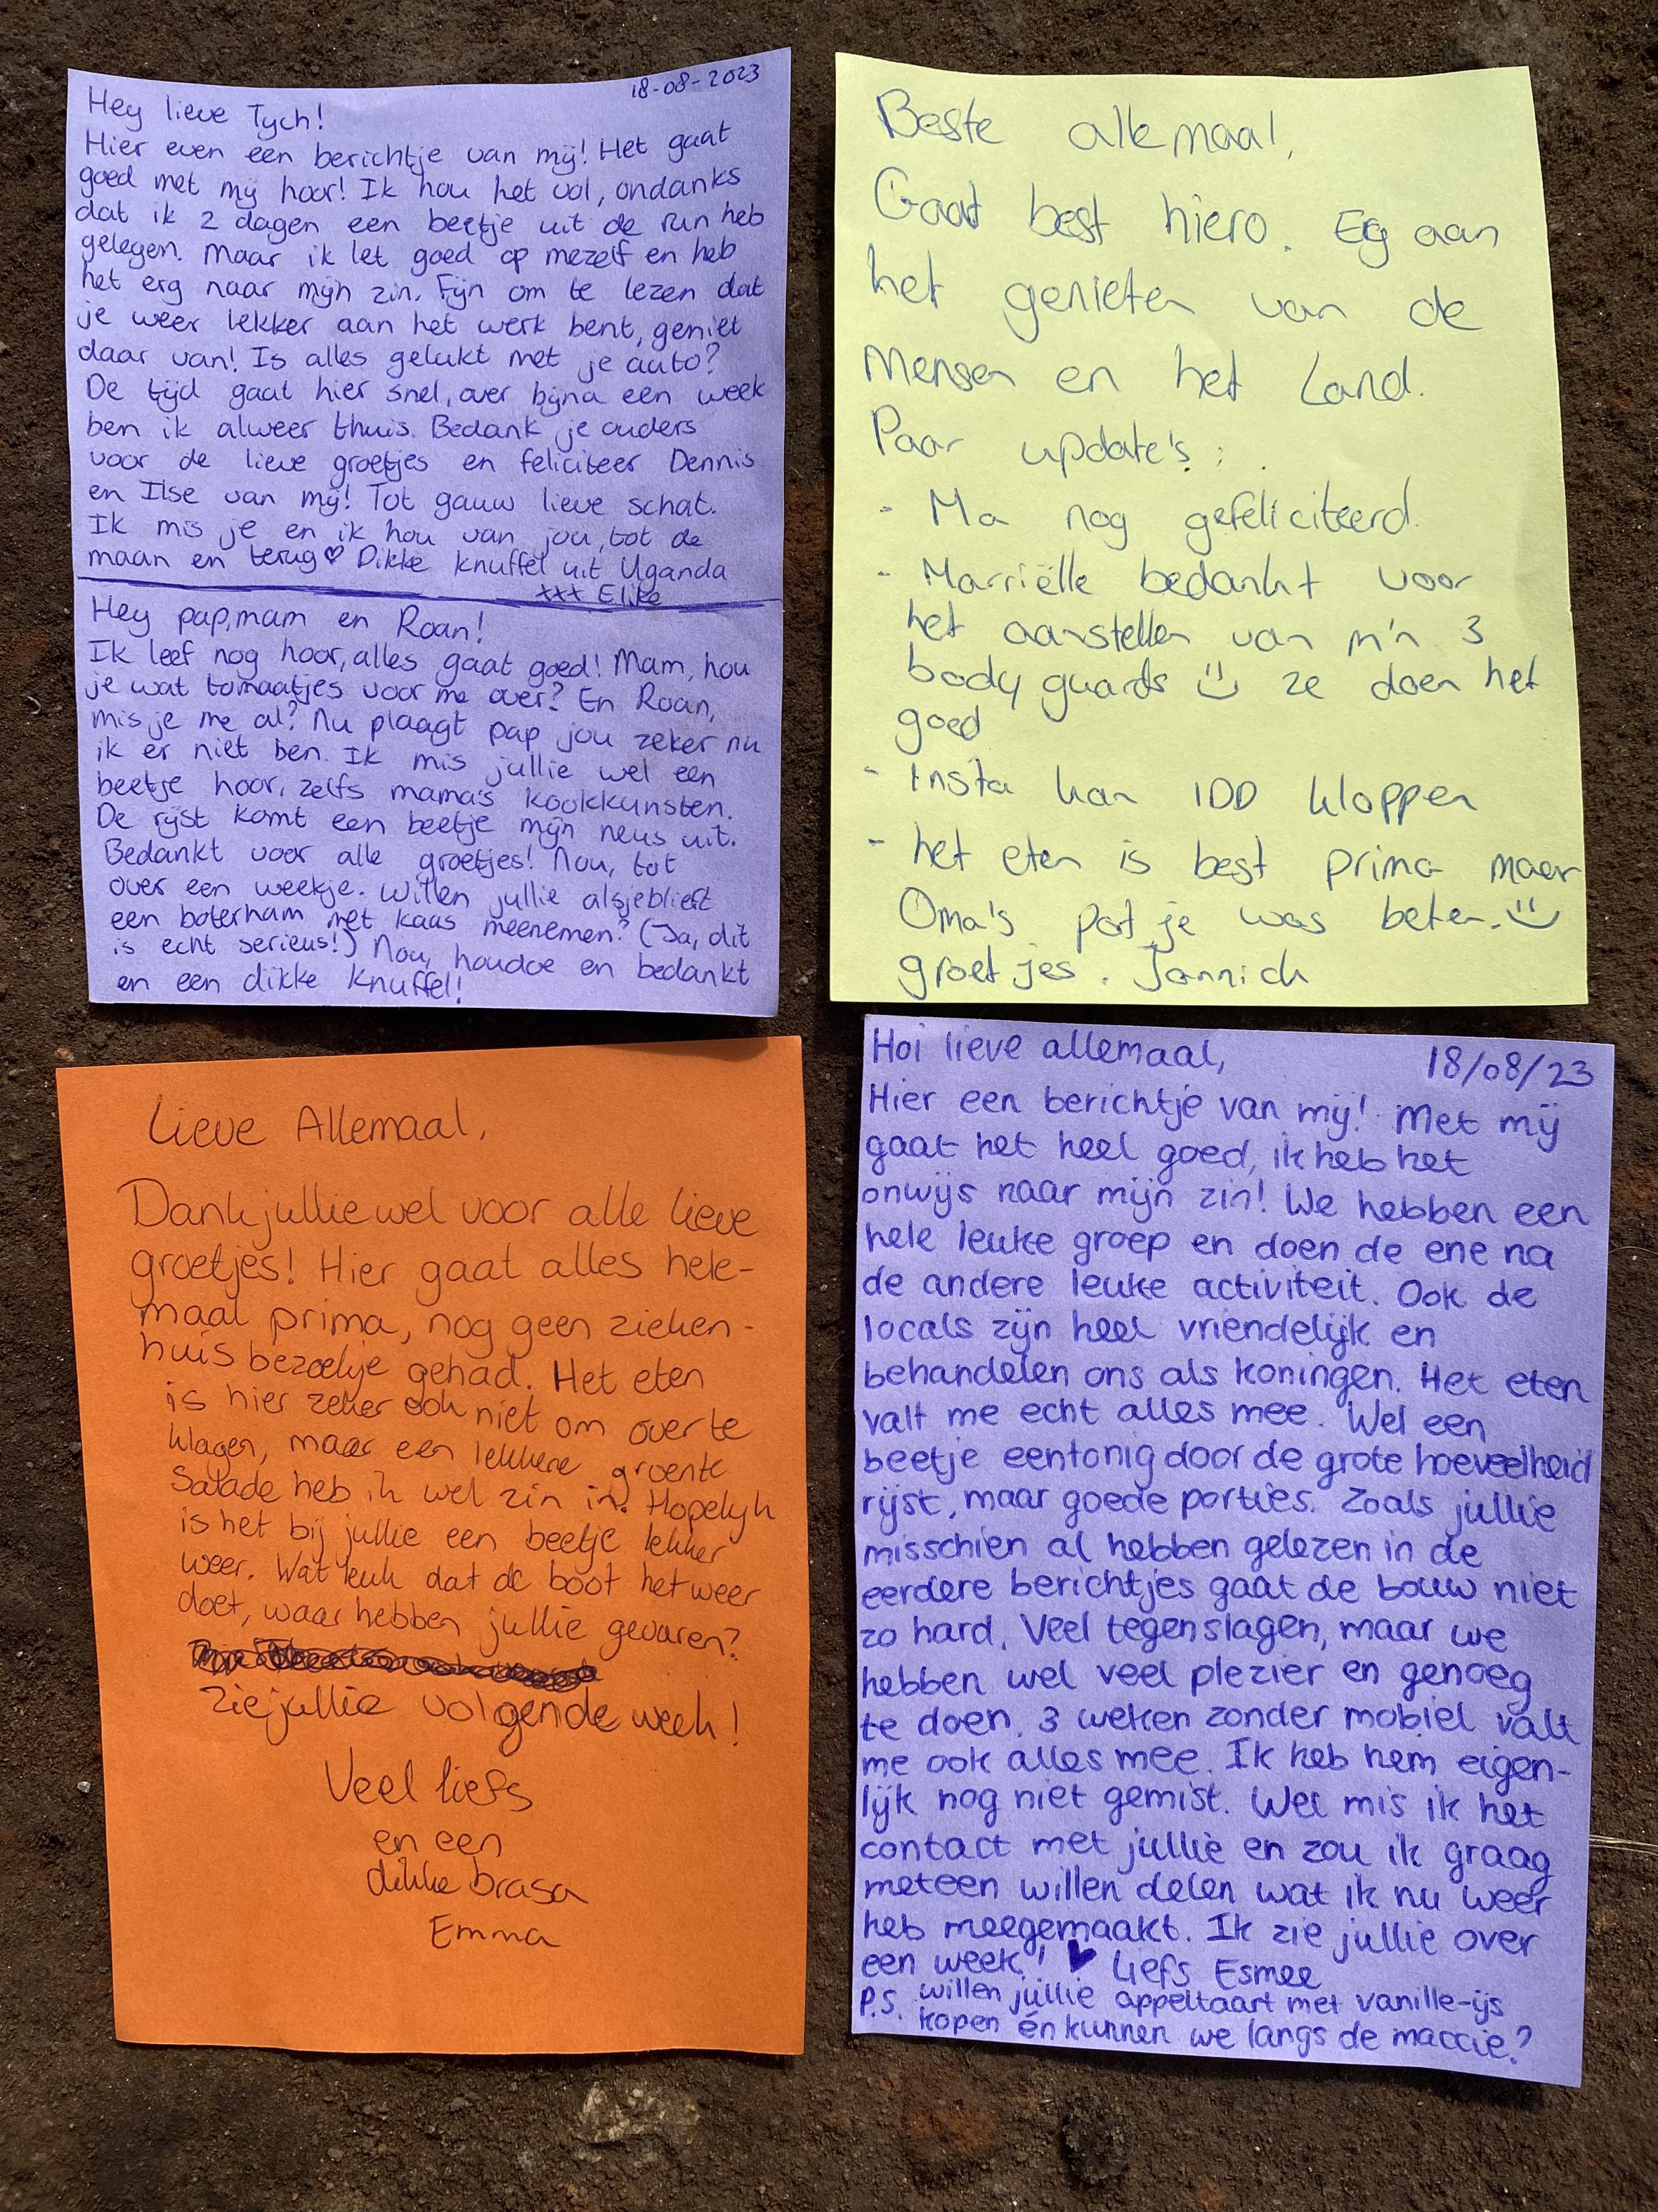 18-08-2023
Hey lieve Tych!
Hier even een berichtje van mij! Het gaat
goed met mij hoor! Ik hou het vol, ondanks
dat ik 2 dagen een beetje uit de run heb
gelegen. Maar ik let goed op mezelf en heb
het erg naar mijn zin. Fijn om te lezen dat
je weer lekker aan het werk bent, geniet
daar van! Is alles gelukt met je auto?
De tijd gaat hier snel, over bijna een week
ben ik alweer thuis. Bedank je ouders
voor de lieve groetjes en feliciteer Dennis
en Ilse van mij! Tot gauw lieve schat.
Ik mis je en ik hou van jou, tot de
maan en terug ♡ Dikke knuffel uit Uganda
xxx Elike
Hey pap, mam en Roan!
Ik leef nog hoor, alles gaat goed! Mam, hou
je wat tomaatjes voor me over? En Roan,
mis je me al? Nu plaagt pap jou zeker nu
ik er niet ben. Ik mis jullie wel een
beetje hoor, zelfs mama's kookkunsten.
De rijst komt een beetje mijn neus uit.
Bedankt voor alle groetjes! Nou, tot
over een weekje. Willen jullie alsjeblieft
een boterham met kaas meenemen? (Ja, dit
is echt serieus!) Nou, houdoe en bedankt
en een dikke knuffel!
Beste allemaal,
Gaat best hiero. Erg aan
het genieten van de
mensen en het land.
Paar update's:
- Ma nog gefeliciteerd.
- Marriëlle bedankt voor
het aanstellen van m'n 3
body guards :) ze doen het
goed
- Insta kan IDD kloppen
- het eten is best prima maar
Oma's portje was beter. :)
groetjes. Jannich
Lieve Allemaal,
Dank jullie wel voor alle lieve
groetjes! Hier gaat alles hele-
maal prima, nog geen zieken-
huis bezoekje gehad. Het eten
is hier zeker ook niet om over te
klagen, maar een lekkere groente
Salade heb ik wel zin in. Hopelijk
is het bij jullie een beetje lekker
weer. Wat leuk dat de boot het weer
doet, waar hebben jullie gevaren?
zie jullie volgende week!
Veel liefs
en een
dikke brasa
Emma
18/08/23
Hoi lieve allemaal,
Hier een berichtje van mij! Met mij
gaat het heel goed, ik heb het
onwijs naar mijn zin! We hebben een
hele leuke groep en doen de ene na
de andere leuke activiteit. Ook de
locals zijn heel vriendelijk en
behandelen ons als koningen. Het eten
valt me echt alles mee. Wel een
beetje eentonig door de grote hoeveelheid
rijst, maar goede porties. Zoals jullie
misschien al hebben gelezen in de
eerdere berichtjes gaat de bouw niet
zo hard. Veel tegenslagen, maar we
hebben wel veel plezier en genoeg
te doen. 3 weken zonder mobiel valt
me ook alles mee. Ik heb hem eigen-
lijk nog niet gemist. Wel mis ik het
contact met jullie en zou ik graag
meteen willen delen wat ik nu weer
heb meegemaakt. Ik zie jullie over
een week! ♥ Liefs Esmee
P.S. willen jullie appeltaart met vanille-ijs
kopen én kunnen we langs de maccie?